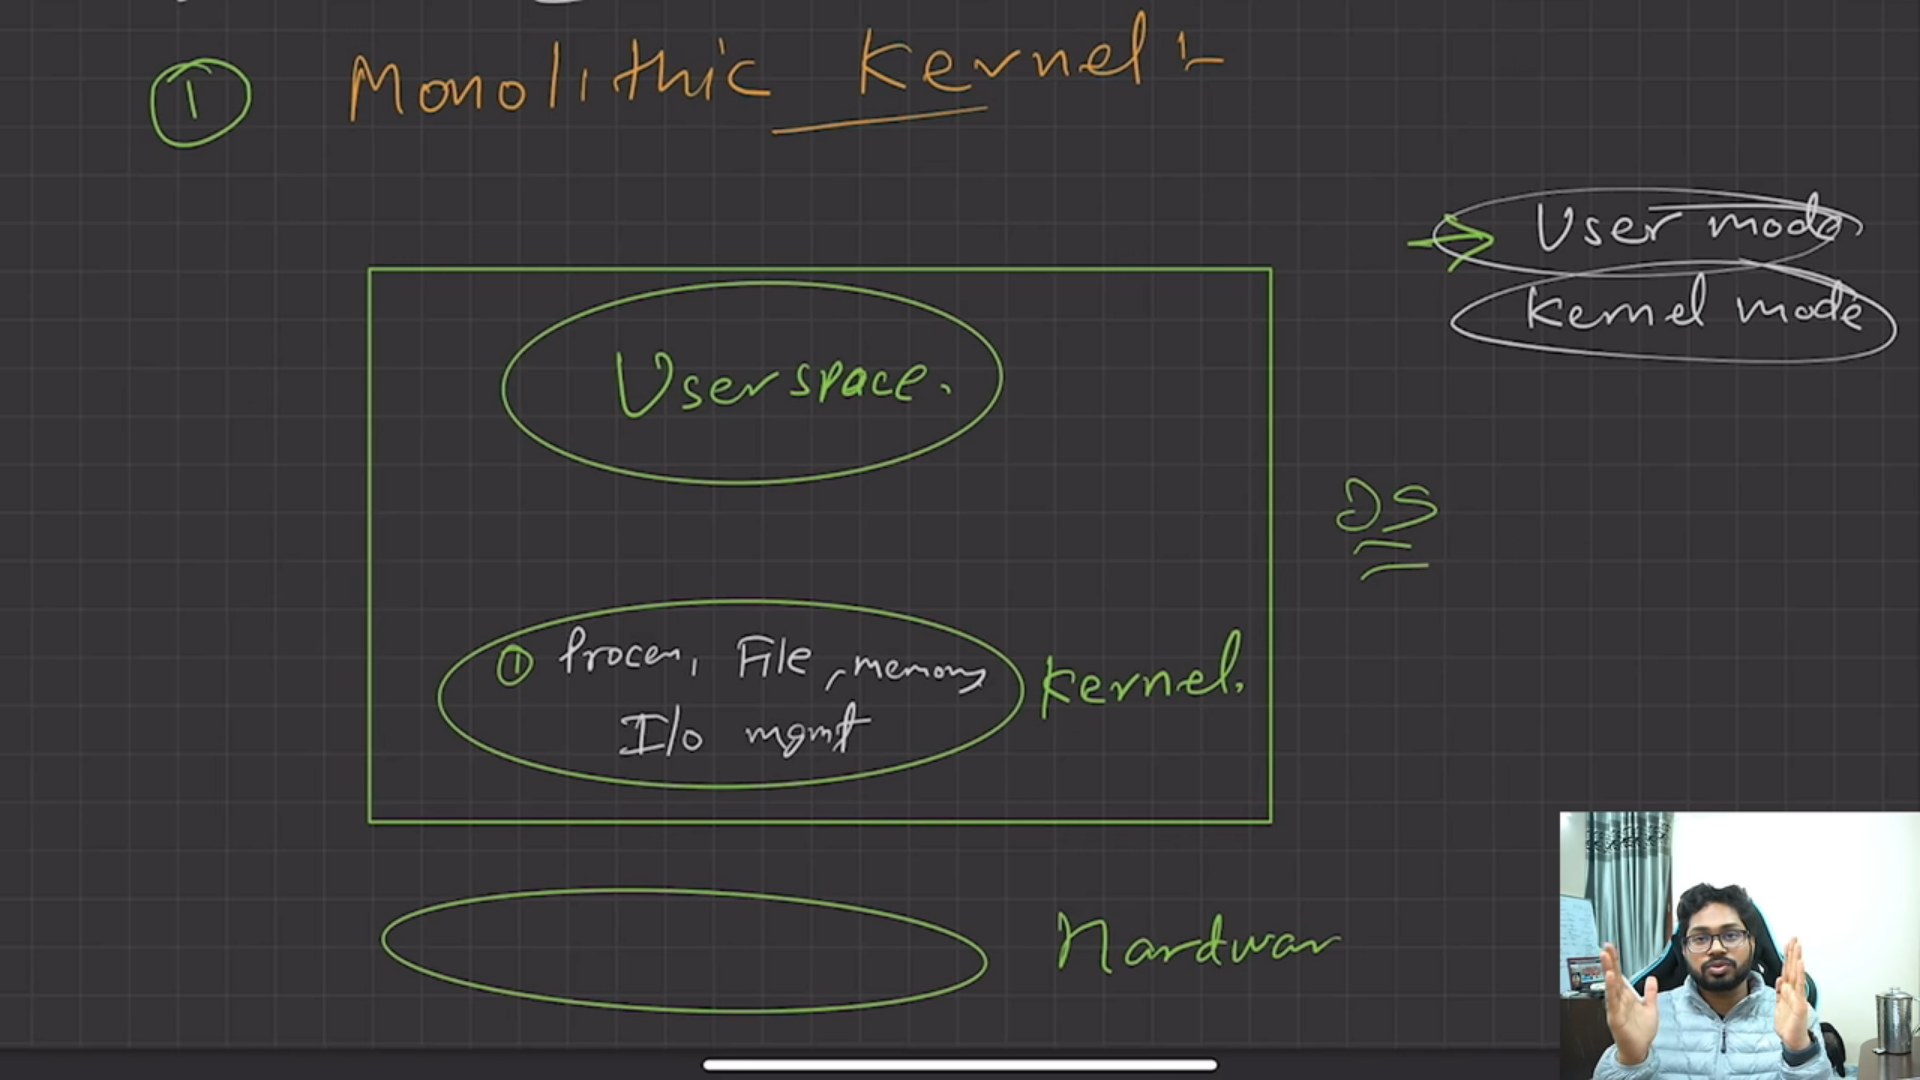 ① Monolithic Kernel :-
User mode
Kernel mode
User space.
OS
① Process, File, memory
I/o mgmt
Kernel.
Hardwar